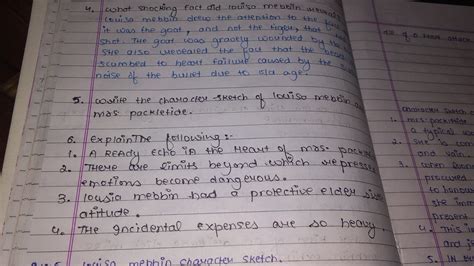 4. What shocking fact did louisa mebbin
louisa mebbin drew the attention to the
it was the goat, and not the tiger, that
shot. The goat was gravely wounded by the
She also revealed the fact that the
scambed to heart failure caused by the
noise of the bullet due to old age.
5. write the character sketch of louisa mebbin
mrs packletide.
6. explain The following :-
1. A READY Echo in the Heart of mrs. pack
2. There are limits beyond which repressed
emotions become dangerous.
3. lousia mebbin had a protective elder sis
atitude.
4. The Incidental expenses are so heavy.
louisa mebbin character sketch.
of a Heart attack
character sketch
1. mrs packletide
a typical
2. she is
and
3. when
to honour
she
present
4. This
and
5. IN